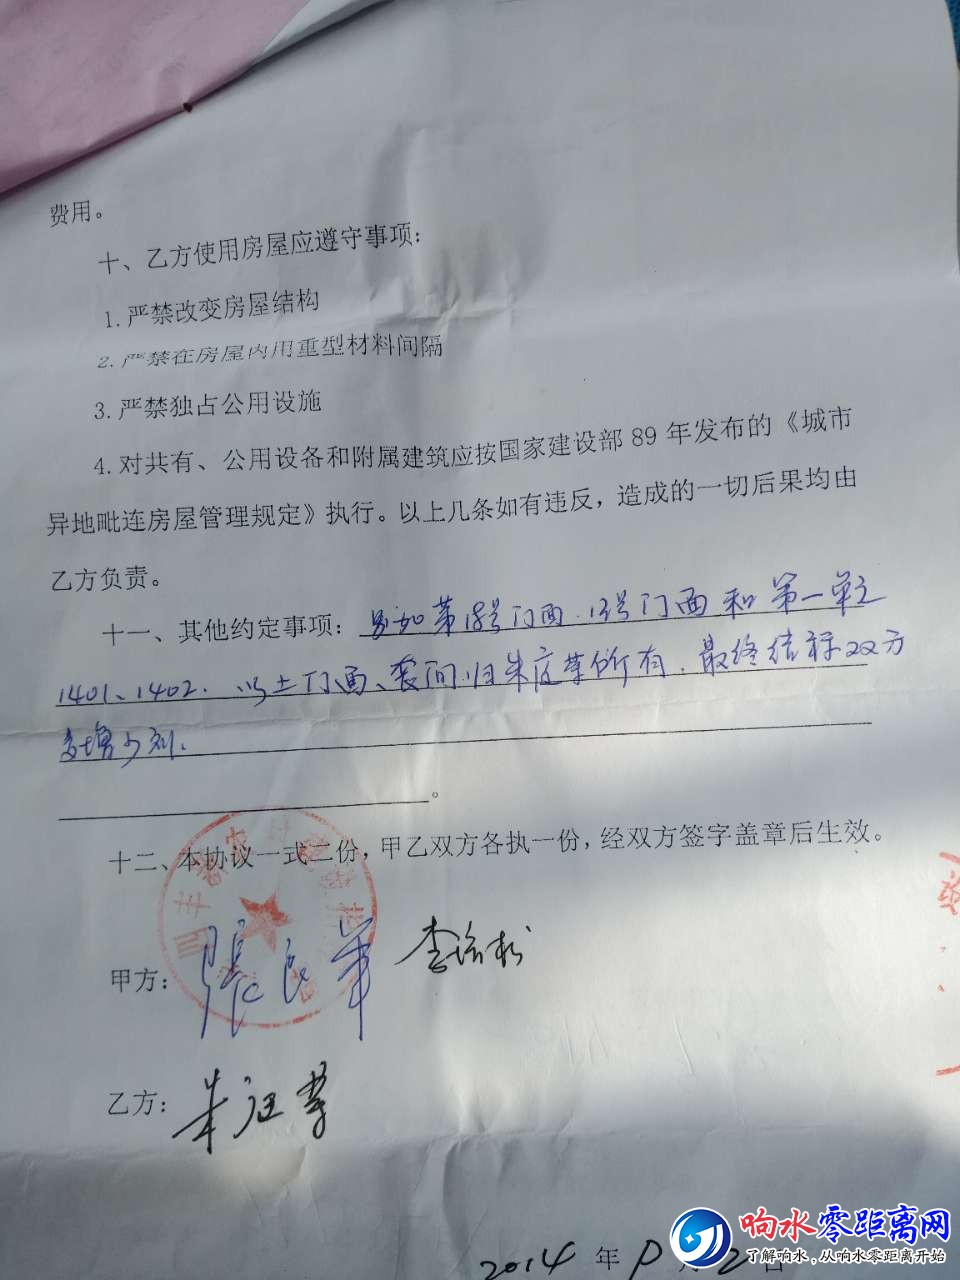 费用。
十、乙方使用房屋应遵守事项：
1.严禁改变房屋结构
2.严禁在房屋内用重型材料间隔
3.严禁独占公用设施
4.对共有、公用设备和附属建筑应按国家建设部 89 年发布的《城市
异地毗连房屋管理规定》执行。以上几条如有违反，造成的一切后果均由
乙方负责。
十一、其他约定事项：门面 门面和第一单元
1401、1402. 以上门面、套间归 所有.最终结 双方
多增少 .
。
十二、本协议一式二份，甲乙双方各执一份，经双方签字盖章后生效。
甲方：張
乙方：朱
2014 年 月 2 日
响水零距离网
了解响水，从响水零距离开始